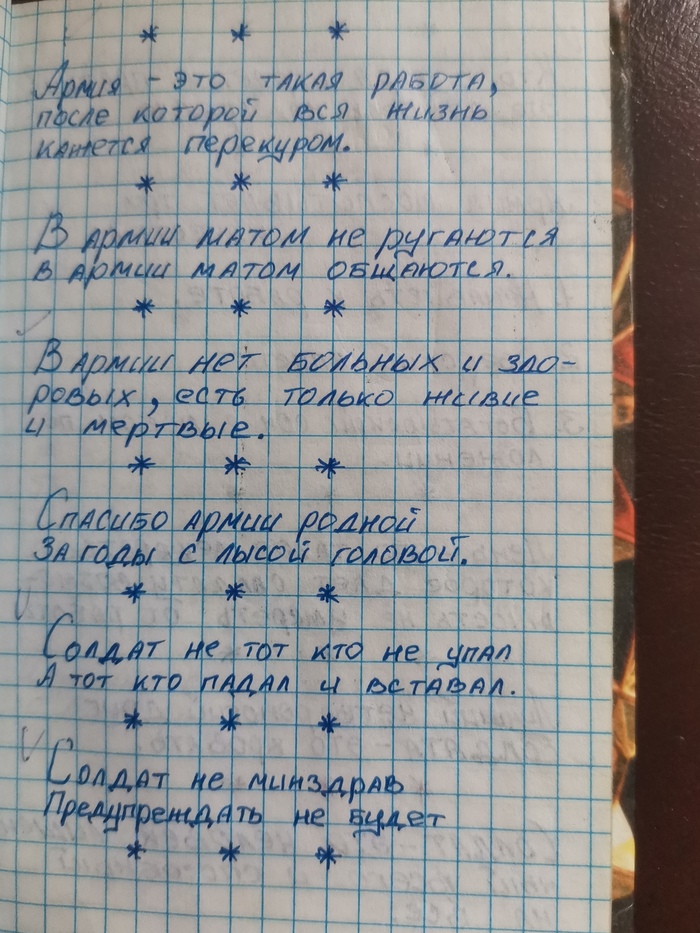 * * *
Армия - это такая работа,
после которой вся жизнь
кажется перекуром.
* * *
В армии матом не ругаются
в армии матом общаются.
* * *
В армии нет больных и здо-
ровых, есть только живие
и мертвые.
* * *
Спасибо армии родной
За годы с лысой головой.
* * *
Солдат не тот кто не упал
А тот кто падал и вставал.
* * *
Солдат не минздрав
Предупреждать не будет
* * *